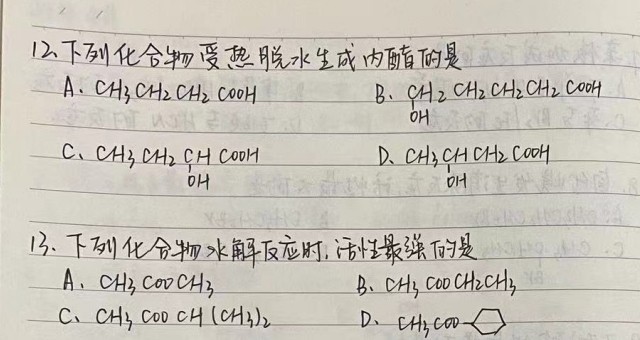 12、下列化合物受热脱水生成内酯的是
A、CH3CH2CH2COOH B、CH2CH2CH2CH2COOH
OH
C、CH3CH2CHCOOH D、CH3CHCH2COOH
OH OH
13、下列化合物水解反应时,活性最强的是
A、CH3COOCH3 B、CH3COOCH2CH3
C、CH3COOCH(CH3)2 D、CH3COO